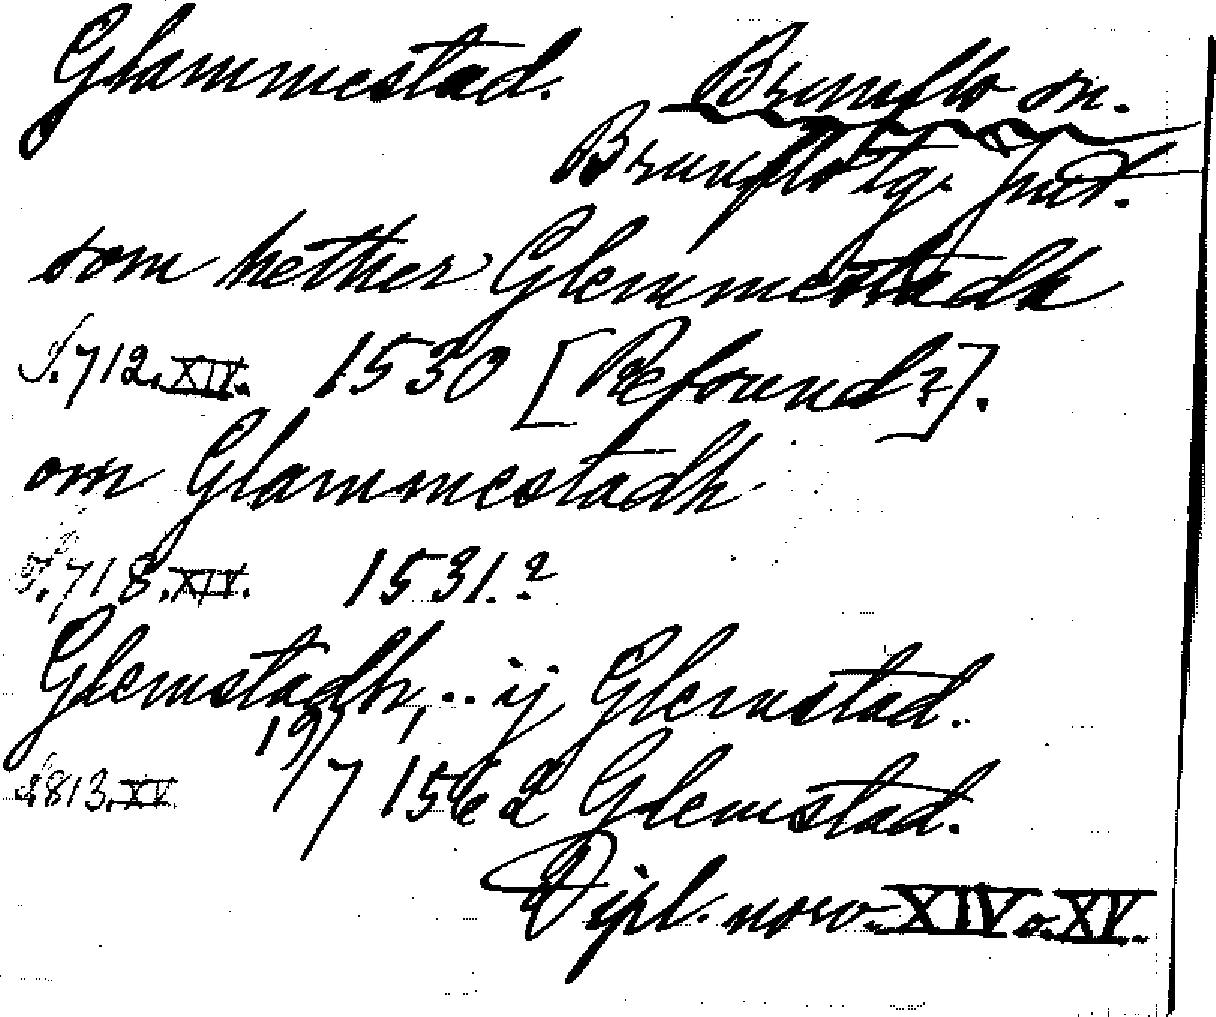 Glammestad. Brunflo sn.
Brunflo tg. Jmtl.
som hether Glemmestadh
S. 712. XIV. 1530 [Refsund?].
om Glammestadh
S. 718. XIV. 1531.?
Glemstadh, .. ij Glemstad.
S. 813. XV. 19/7 1562 Glemstad.
Dipl. norv. XIV o. XV.